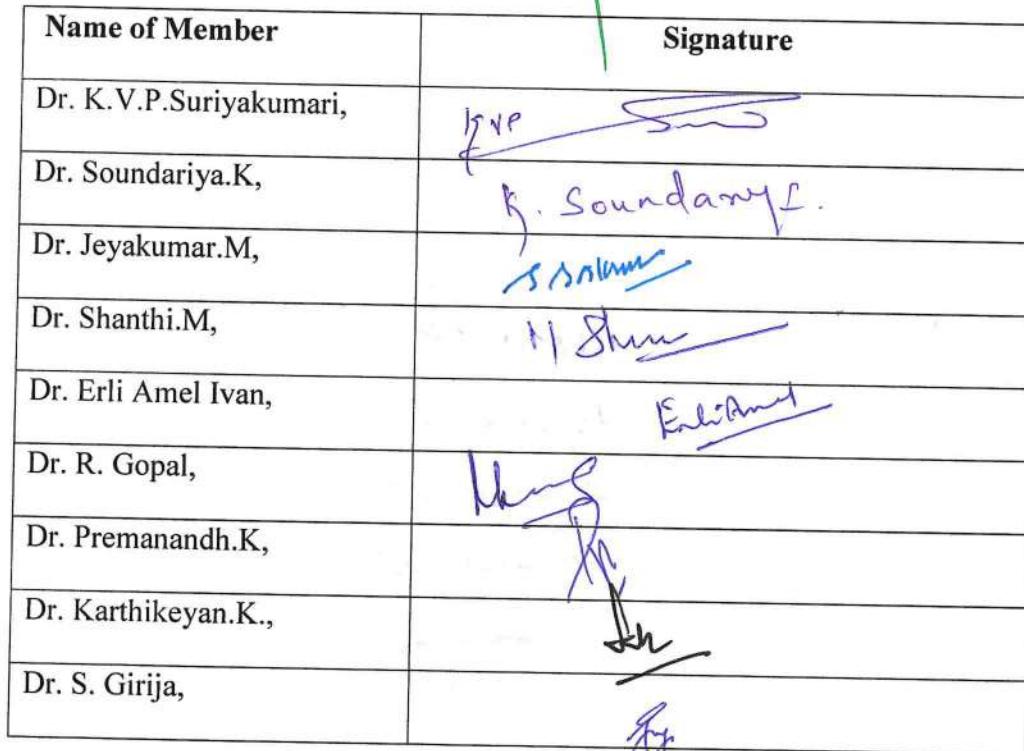 Name of Member Signature
Dr. K.V.P.Suriyakumari, KVP
Dr. Soundariya.K, K. Soundariya.
Dr. Jeyakumar.M,
Dr. Shanthi.M, M
Dr. Erli Amel Ivan, Erli Amel
Dr. R. Gopal,
Dr. Premanandh.K,
Dr. Karthikeyan.K.,
Dr. S. Girija,